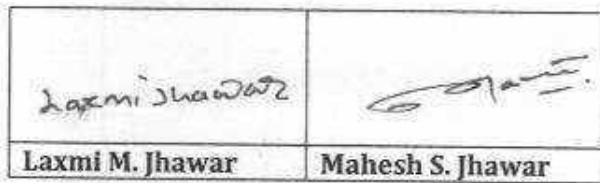 Laxmi Jhawar
Laxmi M. Jhawar Mahesh S. Jhawar